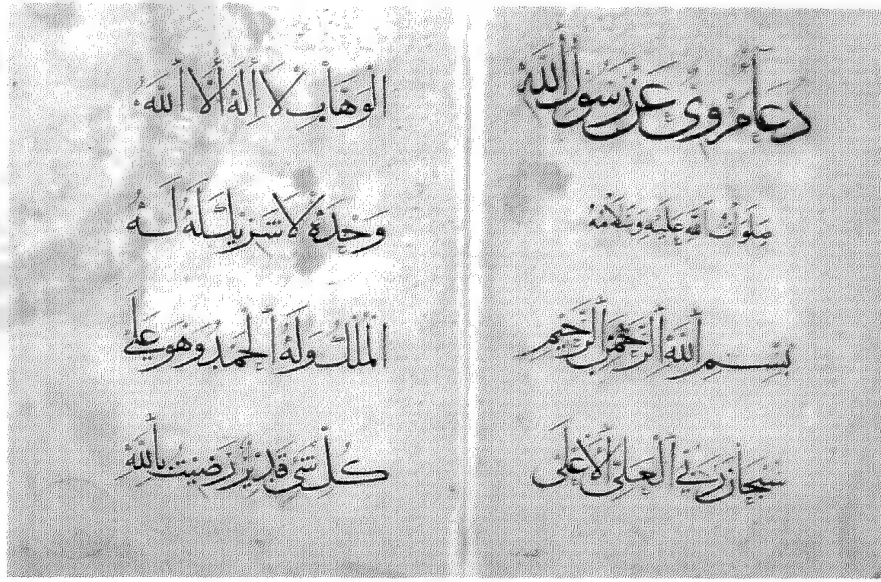 دعا مروي عن رسول الله
صلوات الله عليه وسلامه
بسم الله الرحمن الرحيم
سبحان ربي العلي الاعلى
الوهاب لا اله الا الله
وحده لا شريك له له
الملك وله الحمد وهو على
كل شئ قدير رضيت بالله